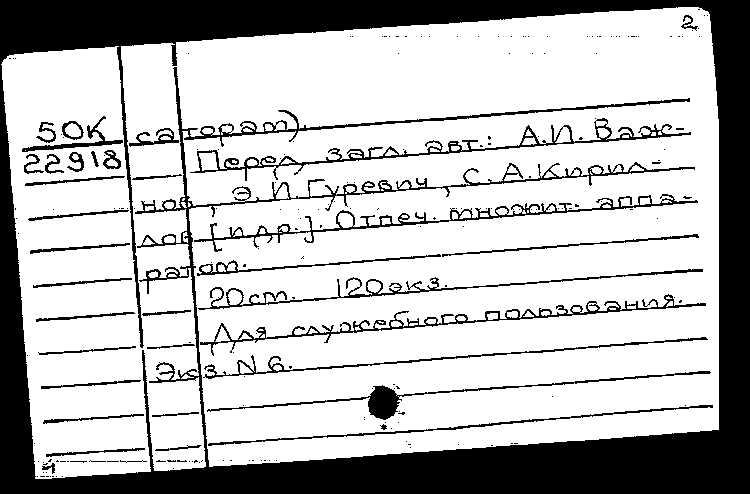 2
50К саторат).
22918 Перед загл. авт.: А.И. Важ-
нов, Э.И. Гуревич, С.А. Кирил-
лов [и др.]. Отпеч. множит. аппа-
ратом.
20 ст. 120 экз.
Для служебного пользования.
Экз. N 6.